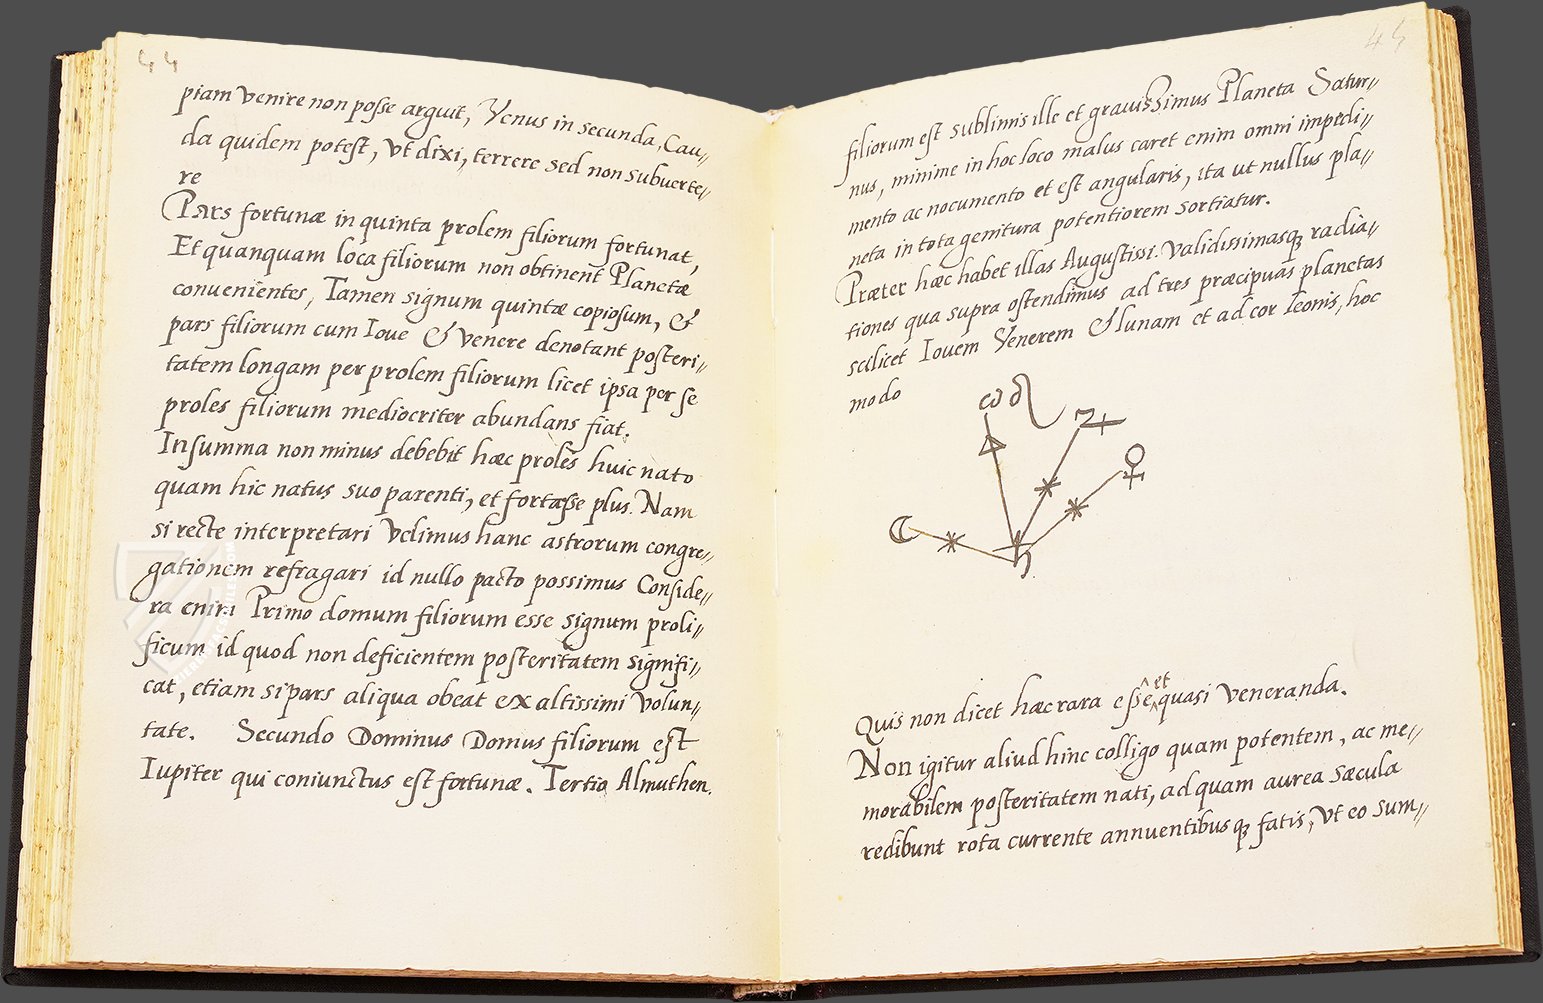 44
piam venire non posse arguit, Venus in secunda, Cau〃
da quidem potest, vt dixi, terrere sed non subuerte〃
re
Pars fortunæ in quinta prolem filiorum fortunat,
Et quanquam loca filiorum non obtinent Planetæ
conuenientes, Tamen signum quintæ copiosum, &
pars filiorum cum Ioue & venere denotant posteri〃
tatem longam per prolem filiorum licet ipsa per se
proles filiorum mediocriter abundans fiat.
In summa non minus debebit hæc proles huic nato
quam hic natus suo parenti, et fortasse plus. Nam
si recte interpretari velimus hanc astrorum congre〃
gationem refragari id nullo pacto possimus Conside〃
ra enim Primo domum filiorum esse signum proli〃
ficum id quod non deficientem posteritatem signifi〃
cat, etiam si pars aliqua obeat ex altissimi volun〃
tate. Secundo Dominus Domus filiorum est
Iupiter qui coniunctus est fortunæ. Tertio Almuthen
45
filiorum est sublimis ille et grauissimus Planeta Satur〃
nus, minime in hoc loco malus caret enim omni impedi〃
mento ac nocumento et est angularis, ita ut nullus pla〃
neta in tota genitura potentiorem sortiatur.
Præter hæc habet illas Augustissi. validissimasqꝫ radia〃
tiones qua supra ostendimus ad tres præcipuas planetas
scilicet Iouem Venerem & lunam et ad cor leonis, hoc
modo
co ♌ ♃
△ ♀
✶ ✶
☾ ✶ ♄
Quis non dicet hæc rara esse ^et quasi veneranda.
Non igitur aliud hinc colligo quam potentem, ac me〃
morabilem posteritatem nati, ad quam aurea sæcula
redibunt rota currente annuentibusqꝫ fatis, vt eo sum〃